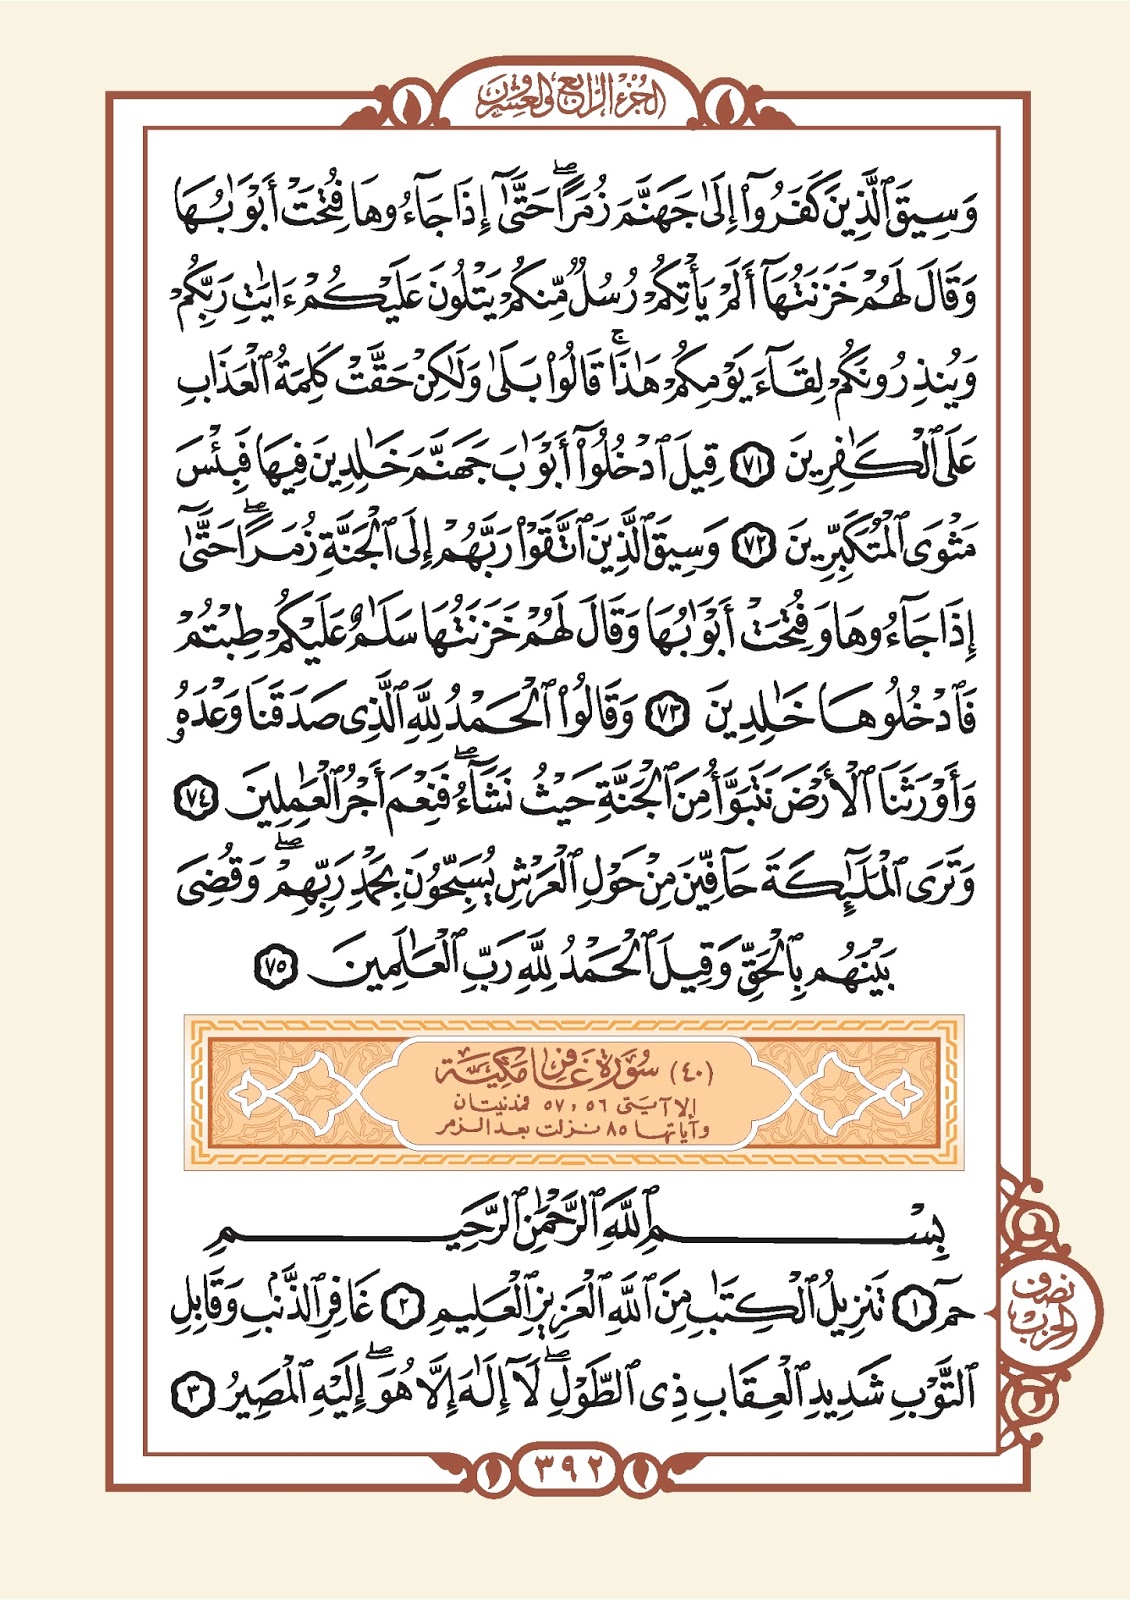 الجزء الرابع والعشرون
وَسِيقَ ٱلَّذِينَ كَفَرُوٓا۟ إِلَىٰ جَهَنَّمَ زُمَرًا ۖ حَتَّىٰٓ إِذَا جَآءُوهَا فُتِحَتْ أَبْوَٰبُهَا
وَقَالَ لَهُمْ خَزَنَتُهَآ أَلَمْ يَأْتِكُمْ رُسُلٌ مِّنكُمْ يَتْلُونَ عَلَيْكُمْ ءَايَٰتِ رَبِّكُمْ
وَيُنذِرُونَكُمْ لِقَآءَ يَوْمِكُمْ هَٰذَا ۚ قَالُوا۟ بَلَىٰ وَلَٰكِنْ حَقَّتْ كَلِمَةُ ٱلْعَذَابِ
عَلَى ٱلْكَٰفِرِينَ ٧١ قِيلَ ٱدْخُلُوٓا۟ أَبْوَٰبَ جَهَنَّمَ خَٰلِدِينَ فِيهَا فَبِئْسَ
مَثْوَى ٱلْمُتَكَبِّرِينَ ٧٢ وَسِيقَ ٱلَّذِينَ ٱتَّقَوْا۟ رَبَّهُمْ إِلَى ٱلْجَنَّةِ زُمَرًا ۖ حَتَّىٰٓ
إِذَا جَآءُوهَا وَفُتِحَتْ أَبْوَٰبُهَا وَقَالَ لَهُمْ خَزَنَتُهَا سَلَٰمٌ عَلَيْكُمْ طِبْتُمْ
فَٱدْخُلُوهَا خَٰلِدِينَ ٧٣ وَقَالُوا۟ ٱلْحَمْدُ لِلَّهِ ٱلَّذِى صَدَقَنَا وَعْدَهُۥ
وَأَوْرَثَنَا ٱلْأَرْضَ نَتَبَوَّأُ مِنَ ٱلْجَنَّةِ حَيْثُ نَشَآءُ ۖ فَنِعْمَ أَجْرُ ٱلْعَٰمِلِينَ ٧٤
وَتَرَى ٱلْمَلَٰٓئِكَةَ حَآفِّينَ مِنْ حَوْلِ ٱلْعَرْشِ يُسَبِّحُونَ بِحَمْدِ رَبِّهِمْ ۖ وَقُضِىَ
بَيْنَهُم بِٱلْحَقِّ وَقِيلَ ٱلْحَمْدُ لِلَّهِ رَبِّ ٱلْعَٰلَمِينَ ٧٥
(٤٠) سُورَة غَافِر مَكِيَّة
إلا آيتى ٥٦، ٥٧ فمدنيتان
وآياتها ٨٥ نزلت بعد الزمر
بِسْمِ ٱللَّهِ ٱلرَّحْمَٰنِ ٱلرَّحِيمِ
حمٓ ١ تَنزِيلُ ٱلْكِتَٰبِ مِنَ ٱللَّهِ ٱلْعَزِيزِ ٱلْعَلِيمِ ٢ غَافِرِ ٱلذَّنۢبِ وَقَابِلِ
ٱلتَّوْبِ شَدِيدِ ٱلْعِقَابِ ذِى ٱلطَّوْلِ ۖ لَآ إِلَٰهَ إِلَّا هُوَ ۖ إِلَيْهِ ٱلْمَصِيرُ ٣
نصف
الحزب
٣٩٢